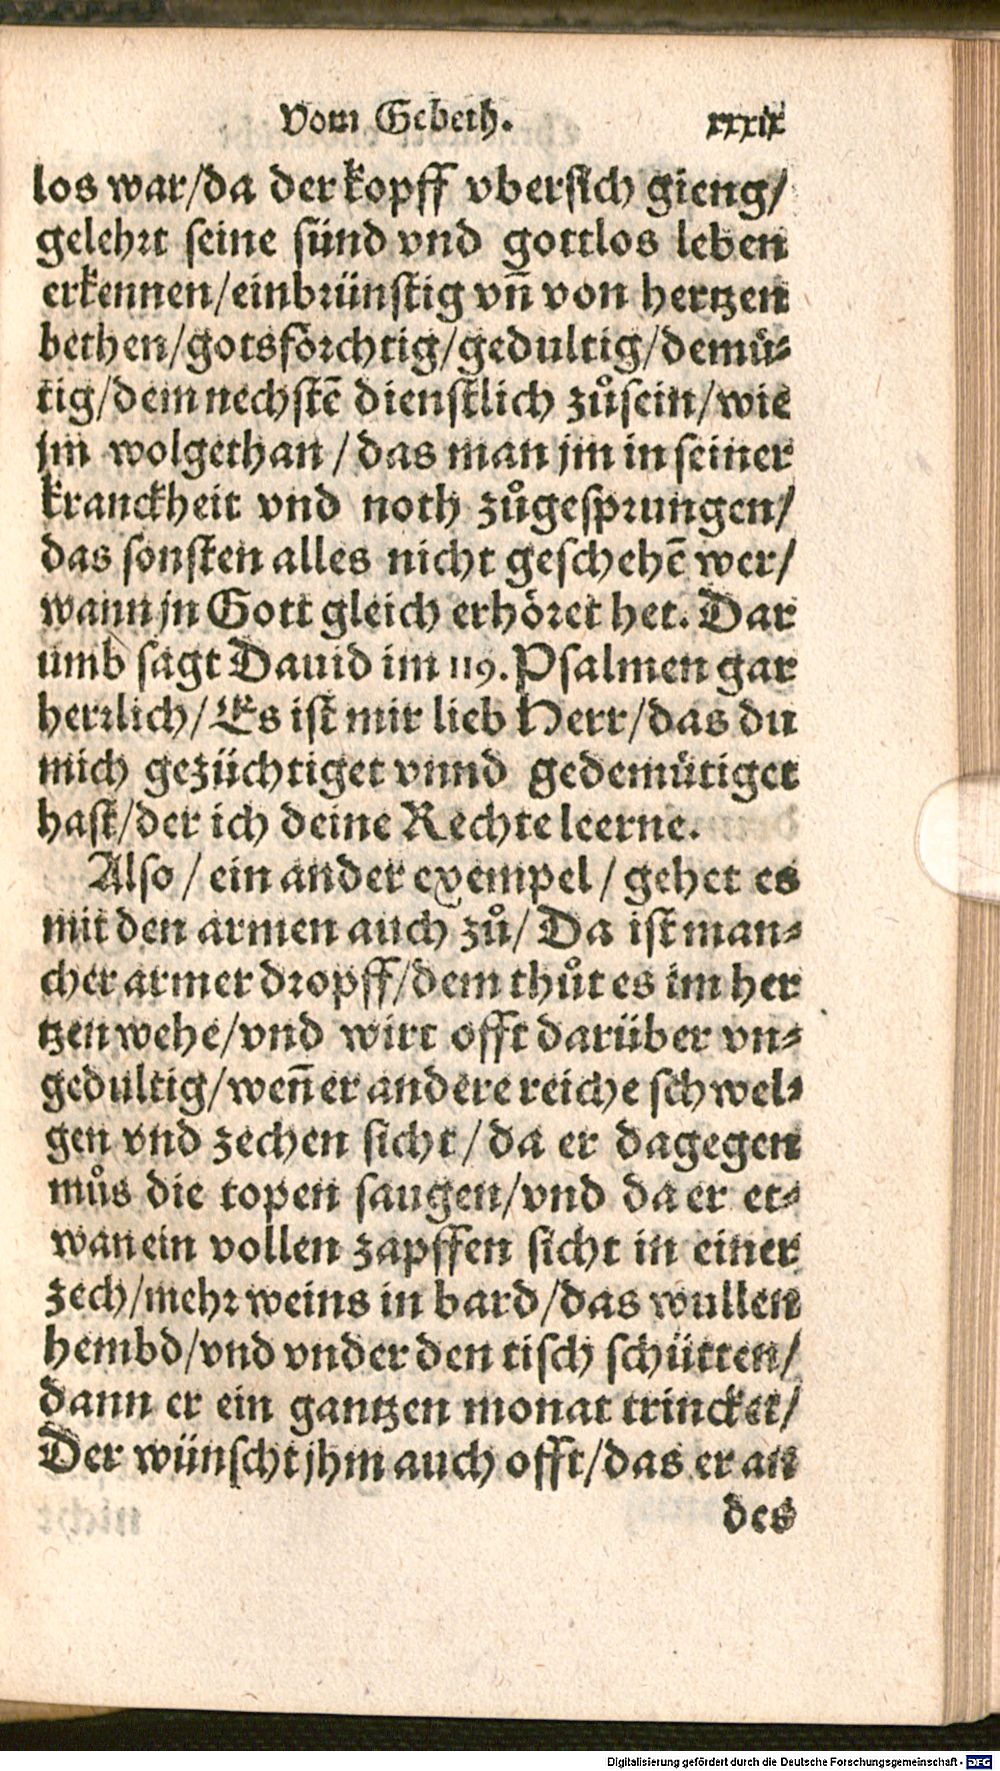 Vom Gebeth. xxxix
los war/da der kopff vbersich gieng/
gelehrt seine sünd vnd gottlos leben
erkennen/einbrünstig vñ von hertzen
bethen/gotsförchtig/gedultig/demü-
tig/dem nechstē dienstlich zůsein/wie
jm wolgethan/das man jm in seiner
kranckheit vnd noth zůgesprungen/
das sonsten alles nicht geschehē wer/
wann jn Gott gleich erhöret het. Dar
umb sagt Dauid im 119. Psalmen gar
herrlich/Es ist mir lieb Herr/das du
mich gezüchtiget vnnd gedemütiget
hast/der ich deine Rechte leerne.
Also/ein ander exempel/gehet es
mit den armen auch zů/Da ist man-
cher armer dropff/dem thůt es im her
tzen wehe/vnd wirt offt darüber vn-
gedultig/weñ er andere reiche schwel-
gen vnd zechen sicht/da er dagegen
můs die topen saugen/vnd da er et-
wan ein vollen zapffen sicht in einer
zech/mehr weins in bard/das wullen
hembd/vnd vnder den tisch schütten/
dann er ein gantzen monat trincket/
Der wünscht jhm auch offt/das er an
des
Digitalisierung gefördert durch die Deutsche Forschungsgemeinschaft - DFG